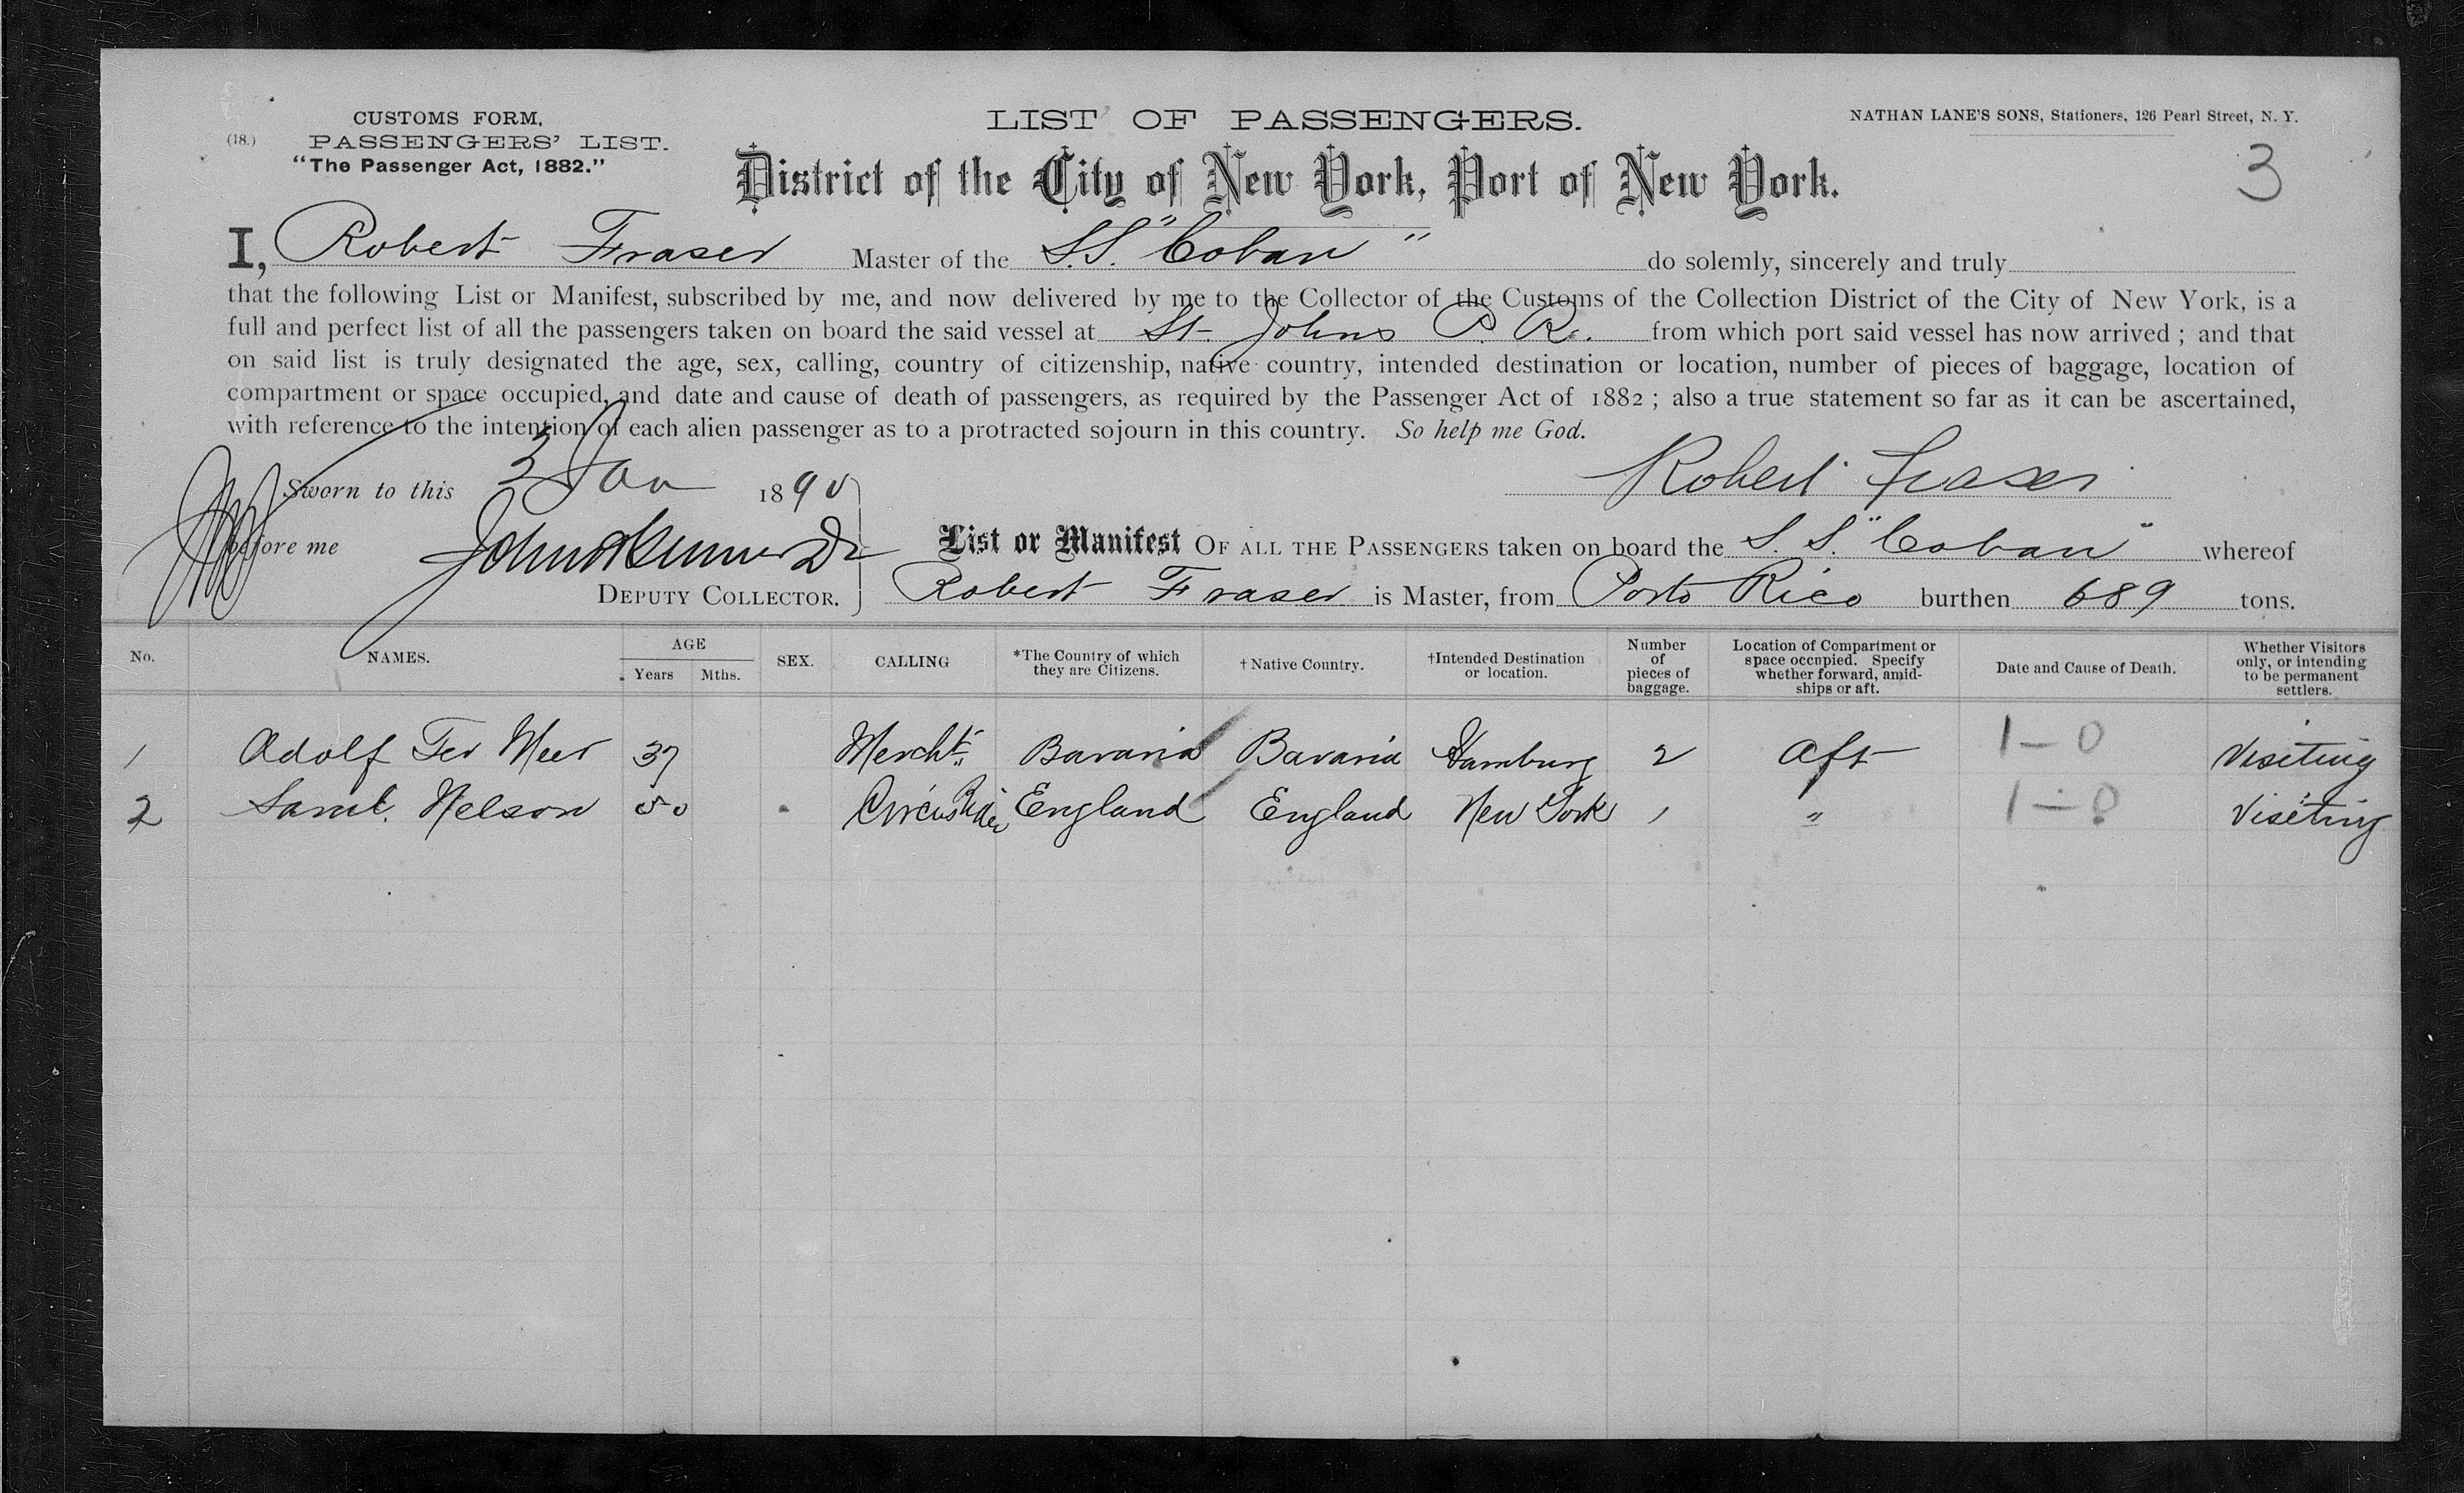 CUSTOMS FORM.
(18.) PASSENGERS' LIST.
"The Passenger Act, 1882."
LIST OF PASSENGERS.
NATHAN LANE'S SONS, Stationers, 126 Pearl Street, N. Y.
District of the City of New York, Port of New York.
3
I, Robert Fraser Master of the S.S. "Coban" do solemly, sincerely and truly
that the following List or Manifest, subscribed by me, and now delivered by me to the Collector of the Customs of the Collection District of the City of New York, is a
full and perfect list of all the passengers taken on board the said vessel at St. Johns P. R. from which port said vessel has now arrived ; and that
on said list is truly designated the age, sex, calling, country of citizenship, native country, intended destination or location, number of pieces of baggage, location of
compartment or space occupied, and date and cause of death of passengers, as required by the Passenger Act of 1882 ; also a true statement so far as it can be ascertained,
with reference to the intention of each alien passenger as to a protracted sojourn in this country. So help me God.
Sworn to this 3 Jan 1890
Robert Fraser
before me
DEPUTY COLLECTOR.
List or Manifest OF ALL THE PASSENGERS taken on board the S. S. "Coban" whereof
Robert Fraser is Master, from Porto Rico burthen 689 tons.
No. NAMES. AGE Years Mths. SEX. CALLING *The Country of which they are Citizens. †Native Country. †Intended Destination or location. Number of pieces of baggage. Location of Compartment or space occupied. Specify whether forward, amid-ships or aft. Date and Cause of Death. Whether Visitors only, or intending to be permanent settlers.
1 Adolf Ter Meer 37 Mercht. Bavaria Bavaria Hamburg 2 Aft 1-0 Visiting
2 Saml. Nelson 50 Circus Rider England England New York 1 " 1-0 Visiting